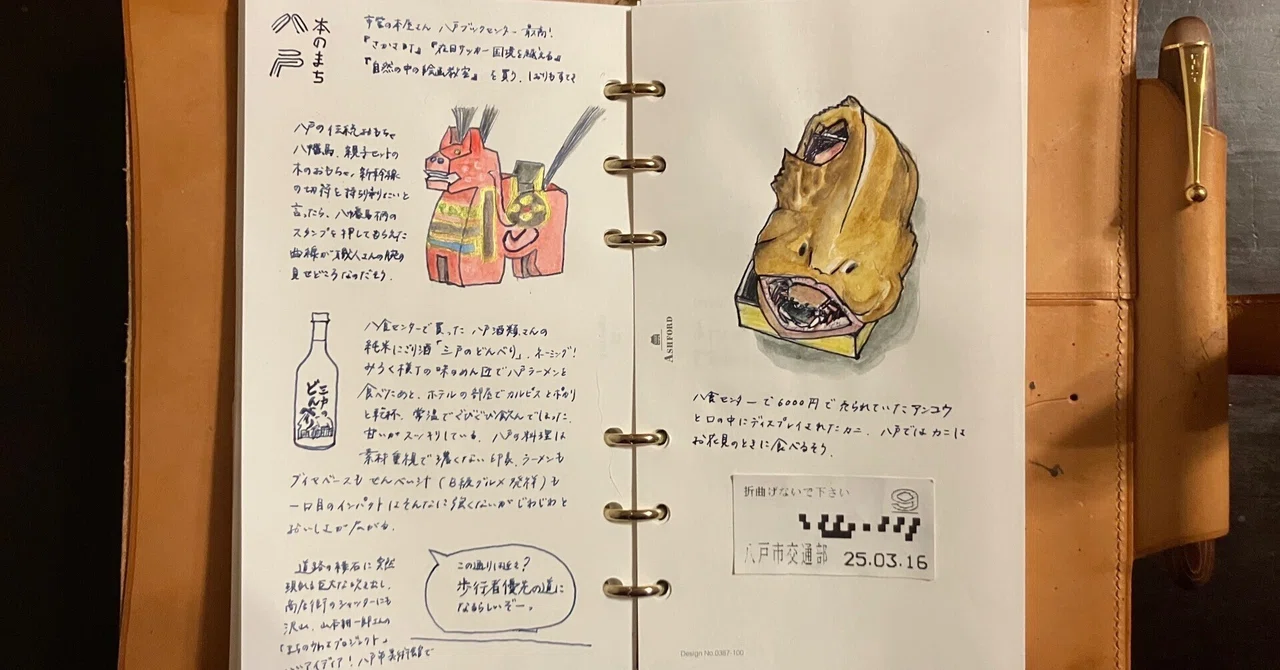 本のまち
八戸
市営の本屋さん 八戸ブックセンター 最高!
『さかさ町』『在日サッカー、国境を越える』
『自然の中の絵画教室』を買う。しおりもすてき
八戸の伝統おもちゃ
八幡馬、親子セットの
木のおもちゃ。新幹線
の切符を持ち帰りたいと
言ったら、八幡馬柄の
スタンプを押してもらえた
曲線が職人さんの腕の
見せどころなのだそう。
八食センターで買った 八戸酒類さんの
純米にごり酒「三戸のどんべり」。ネーミング!
みろく横丁の味のめん匠で八戸ラーメンを
食べたあと、ホテルの部屋でカルピスとポカリ
と乾杯。常温でぐびぐび飲んでしまった
甘いがスッキリしている。八戸の料理は
素材重視で濃くない印象。ラーメンも
ブイヤベースも せんべい汁(B級グルメ発祥)も
一口目のインパクトはそんなに強くないがじわじわと
おいしさが広がる。
三戸の
どんべり
道路の縁石に突然
現れる巨大な吹き出し。
商店街のシャッターにも
沢山。山本耕一郎さんの
「まちのうわさプロジェクト」
いいアイディア!八戸市美術館で
この通りは近々?
歩行者優先の道に
なるらしいぞー。
ASHFORD
八食センターで6000円で売られていたアンコウ
と口の中にディスプレイされたカニ。八戸ではカニは
お花見のときに食べるそう。
折曲げないで下さい
八戸市交通部 25.03.16
Design No.0387-100